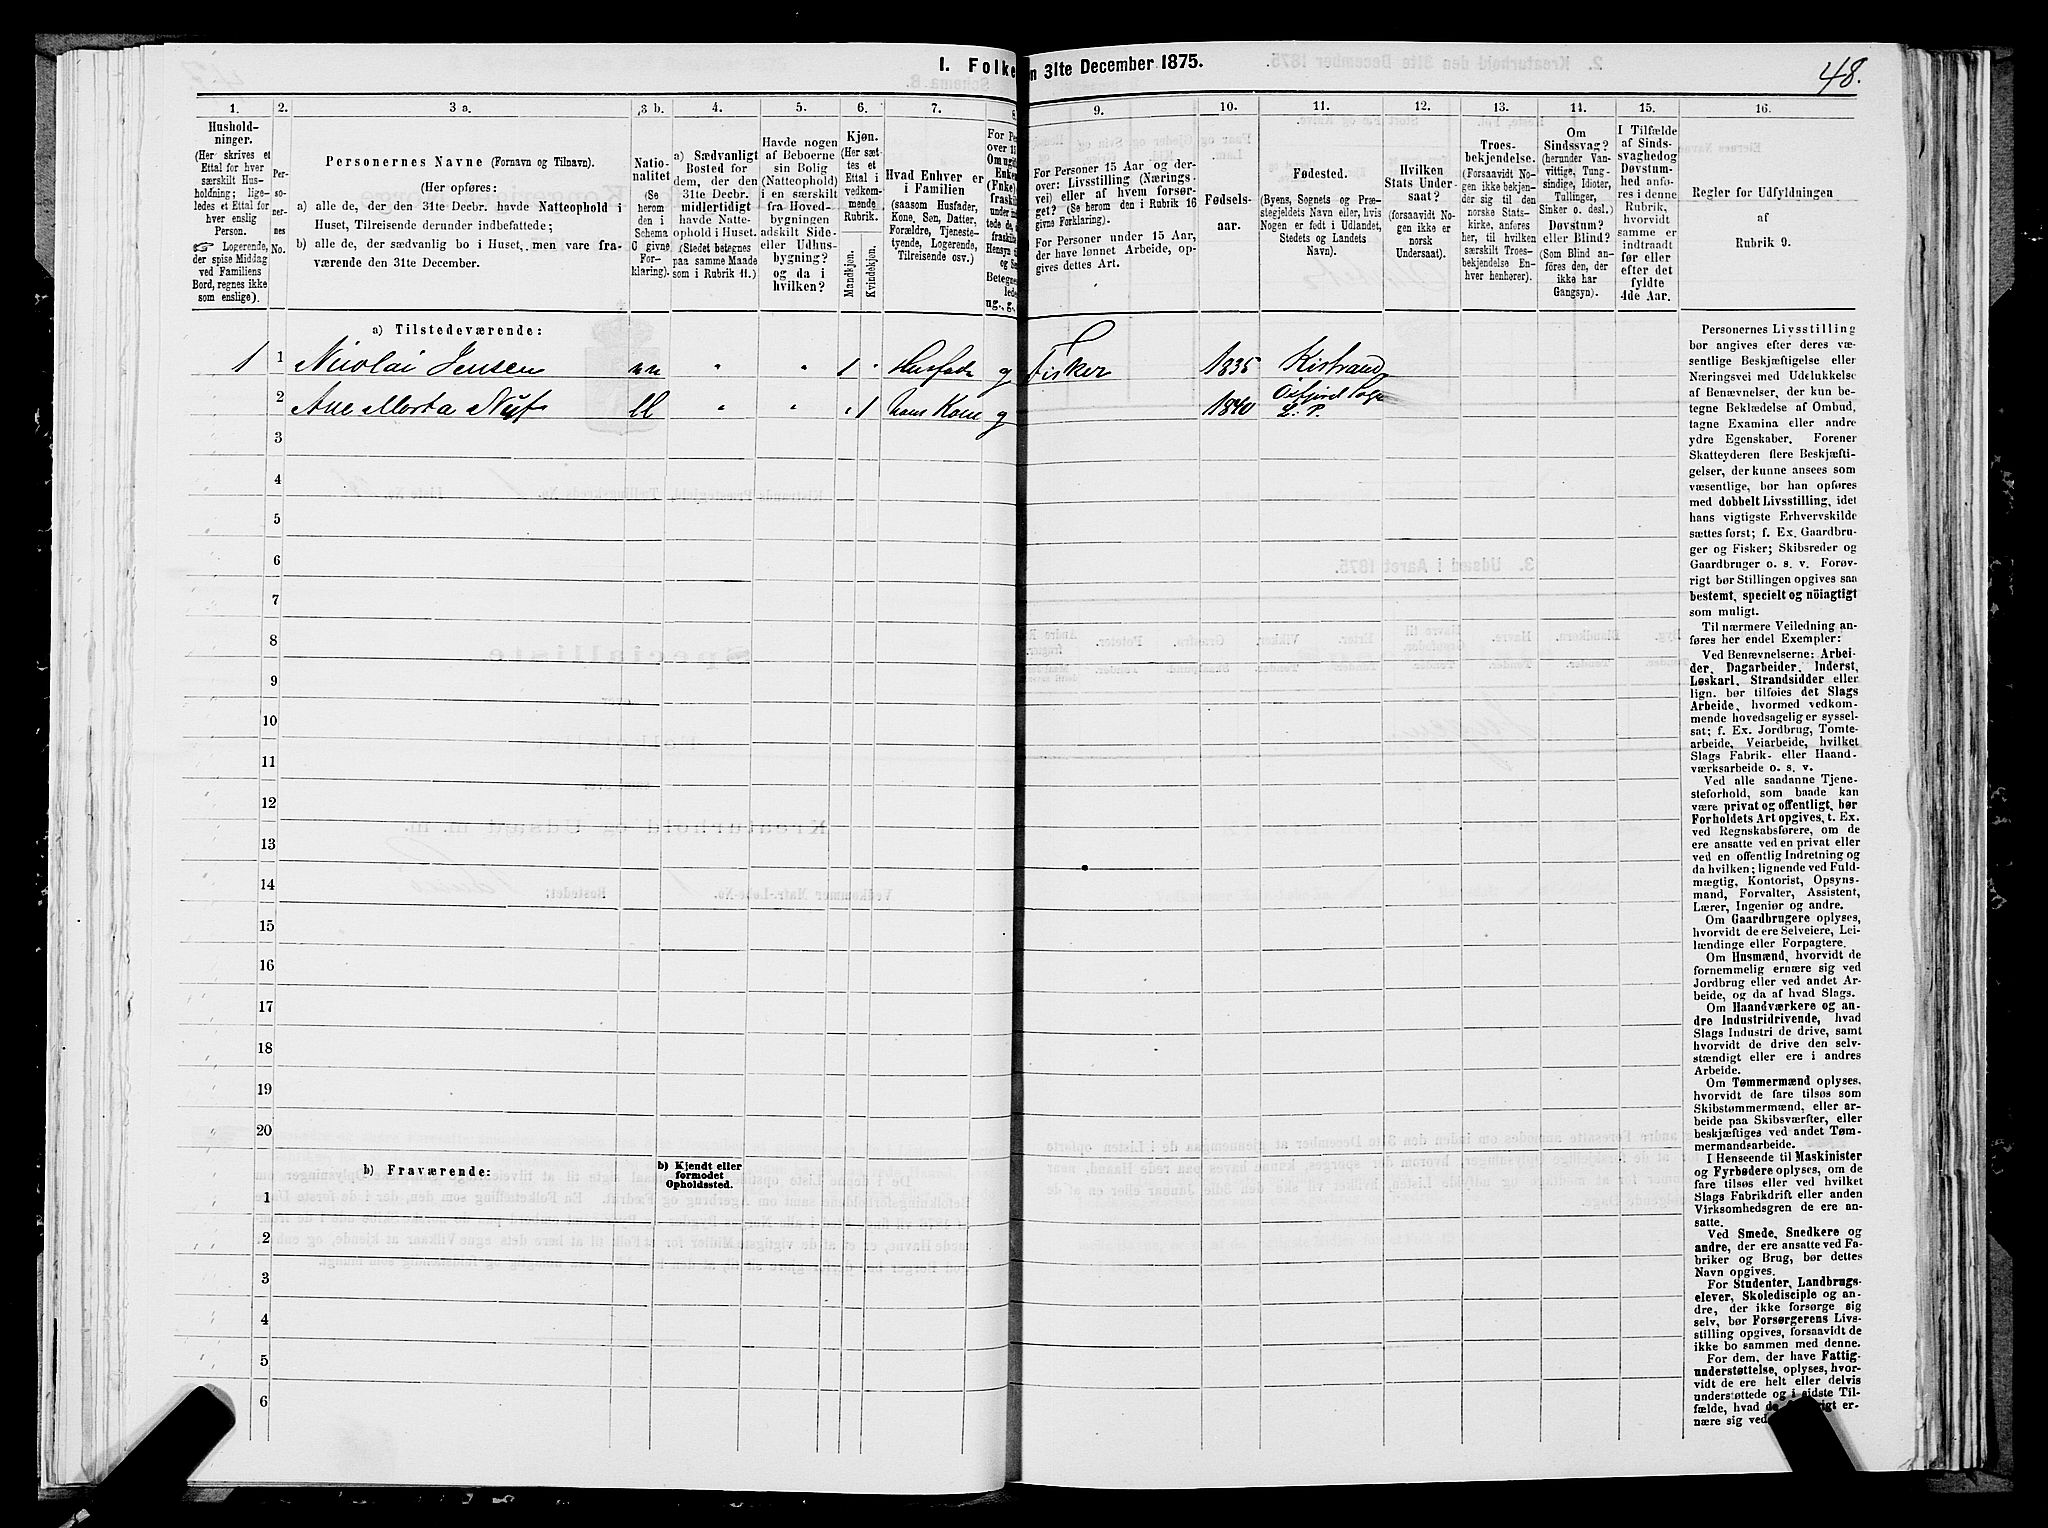 I. Folke
n 31te December 1875.
48.
1. 2. 3 a. 3 b. 4. 5. 6. 7. 8
9. 10. 11. 12. 13. 14. 15. 16.
Hushold-
ninger.
(Her skrives et
Ettal for hver
særskilt Hus-
holdning; lige-
ledes et Ettal for
hver enslig
Person.
☞ Logerende,
der spise Middag
ved Familiens
Bord, regnes ikke
som enslige).
Per-
so-
ner-
nes
No.
Personernes Navne (Fornavn og Tilnavn).
(Her opføres:
a) alle de, der den 31te Decbr. havde Natteophold i
Huset, Tilreisende derunder indbefattede;
b) alle de, der sædvanlig bo i Huset, men vare fra-
værende den 31te December.
Natio-
nalitet
(Se
herom
den i
Schema
C givne
For-
klaring).
a) Sædvanligt
Bosted for
dem, der den
31te Decbr.
midlertidigt
havde Natte-
ophold i Huset.
(Stedet betegnes
paa samme Maade
som i Rubrik 11.)
Havde nogen
af Beboerne
sin Bolig
(Natteophold)
i en særskilt
fra Hoved-
bygningen
adskilt Side-
eller Udhus-
bygning?
og da i
hvilken?
Kjøn.
(Her sæt-
tes et
Ettal i
vedkom-
mende
Rubrik.
Mandkjøn.
Kvindekjøn.
Hvad Enhver er
i Familien
(saasom Husfader,
Kone, Søn, Datter,
Forældre, Tjeneste-
tyende, Logerende,
Tilreisende osv.)
For Pe
over 15
Om ugift
Enken
(Fnke)
fraskilt
under in
tede de,
fraskil
Hensyn t
og Se
Betegne
lede
ug., g.,
For Personer 15 Aar og der-
over: Livsstilling (Nærings-
vei) eller af hvem forsør-
get? (Se herom de i Rubrik 16
givne Forklaring).
For Personer under 15 Aar,
der have lønnet Arbeide, op-
gives dettes Art.
Fødsels-
aar.
Fødested.
(Byens, Sognets og Præ-
stegjeldets Navn eller, hvis
Nogen er født i Udlandet,
Stedets og Landets
Navn).
Hvilken
Stats Under-
saat?
(forsaavidt No-
gen ikke er
norsk
Undersaat).
Troes-
bekjendelse.
(Forsaavidt No-
gen ikke bekjen-
der sig til den
norske Stats-
kirke, anføres
her, til hvilken
særskilt Troes-
bekjendelse En-
hver henhører).
Om
Sindssvag?
(herunder Van-
vittige, Tung-
sindige, Idioter,
Tullinger,
Sinker o. desl.)
Døvstum?
eller Blind?
(Som Blind an-
føres den, der
ikke har
Gangsyn).
I Tilfælde
af Sinds-
svaghedog
Døvstum-
hed anfø-
res i denne
Rubrik,
hvorvidt
samme er
indtraadt
før eller
efter det
fyldte
4de Aar.
Regler for Udfyldningen
af
Rubrik 9.
a) Tilstedeværende:
1 1 Nicolai Jensen nn " " 1 " g Fisker 1835 Kistrand
2 Ane Marta " " " 1 hans Kone g 1840
3
4
5
6
7
8
9
10
11
12
13
14
15
16
17
18
19
20
b) Fraværende:
b) Kjendt eller
formodet
Opholdssted.
1
2
3
4
5
6
Personernes Livsstilling
bor angives efter deres væ-
sentlige Beskjæftigelse eller
Næringsvei med Udelukkelse
af Benævnelser, der kun be-
tegne Beklædelse af Ombud,
tagne Examina eller andre
ydre Egenskaber. Forener
Skatteyderen flere Beskjæfti-
gelser, der kunne ansees som
væsentlige, bør han opføres
med dobbelt Livsstilling, idet
hans vigtigste Erhvervskilde
sættes først; f. Ex. Gaardbru-
ger og Fisker; Skibsreder og
Gaardbruger o. s. v. Forøv-
rigt bør Stillingen opgives saa
bestemt, specielt og nöiagtigt
som muligt.
Til nærmere Veiledning an-
føres her endel Exempler:
Ved Benævnelserne: Arbei-
der, Dagarbeider, Inderst,
Løskarl, Strandsidder eller
lign. bør tilføies det Slags
Arbeide, hvormed vedkom-
mende hovedsagelig er syssel-
sat; f. Ex. Jordbrug, Tomte-
arbeide, Veiarbeide, hvilket
Slags Fabrik- eller Haand-
værksarbeide o. s. v.
Ved alle saadanne Tjene-
steforhold, som baade kan
være privat og offentligt, bør
Forholdets Art opgives, t. Ex.
ved Regnskabsførere, om de
ere ansatte ved en privat eller
ved en offentlig Indretning og
da hvilken; lignende ved Fuld-
mægtig, Kontorist, Opsyns-
mand, Forvalter, Assistent,
Lærer, Ingeniør og andre.
Om Gaardbrugere oplyses,
hvorvidt de ere Selveiere, Lei-
lændinge eller Forpagtere.
Om Husmænd, hvorvidt de
fornemmelig ernære sig ved
Jordbrug eller ved andet Ar-
beide, og da af hvad Slags.
Om Haandværkere og an-
dre Industridrivende, hvad
Slags Industri de drive, samt
hvorvidt de drive den selv-
stændigt eller ere i andres
Arbeide.
Om Tømmermænd oplyses,
hvorvidt de fare tilsøs som
Skibstømmermænd, eller ar-
beide paa Skibsværfter, eller
beskjæftiges ved andet Tøm-
mermandsarbeide.
I Henseende til Maskinister
og Fyrbødere oplyses, om de
fare tilsøs eller ved hvilket
Slags Fabrikdrift eller anden
Virksomhedsgren de ere an-
satte.
Ved Smede, Snedkere og
andre, der ere ansatte ved Fa-
briker og Brug, bør dettes
Navn opgives.
For Studenter, Landbrugs-
elever, Skoledisciple og an-
dre, der ikke forsørge sig
selv, bør Forsørgerens Livs-
stilling opgives, forsaavidt de
ikke bo sammen med denne.
For dem, der have Fattig-
understøttelse, oplyses, hvor-
vidt de ere helt eller delvis
understøttede og i sidste Til-
fælde, hvad de øvrigt er-
nære sig ved